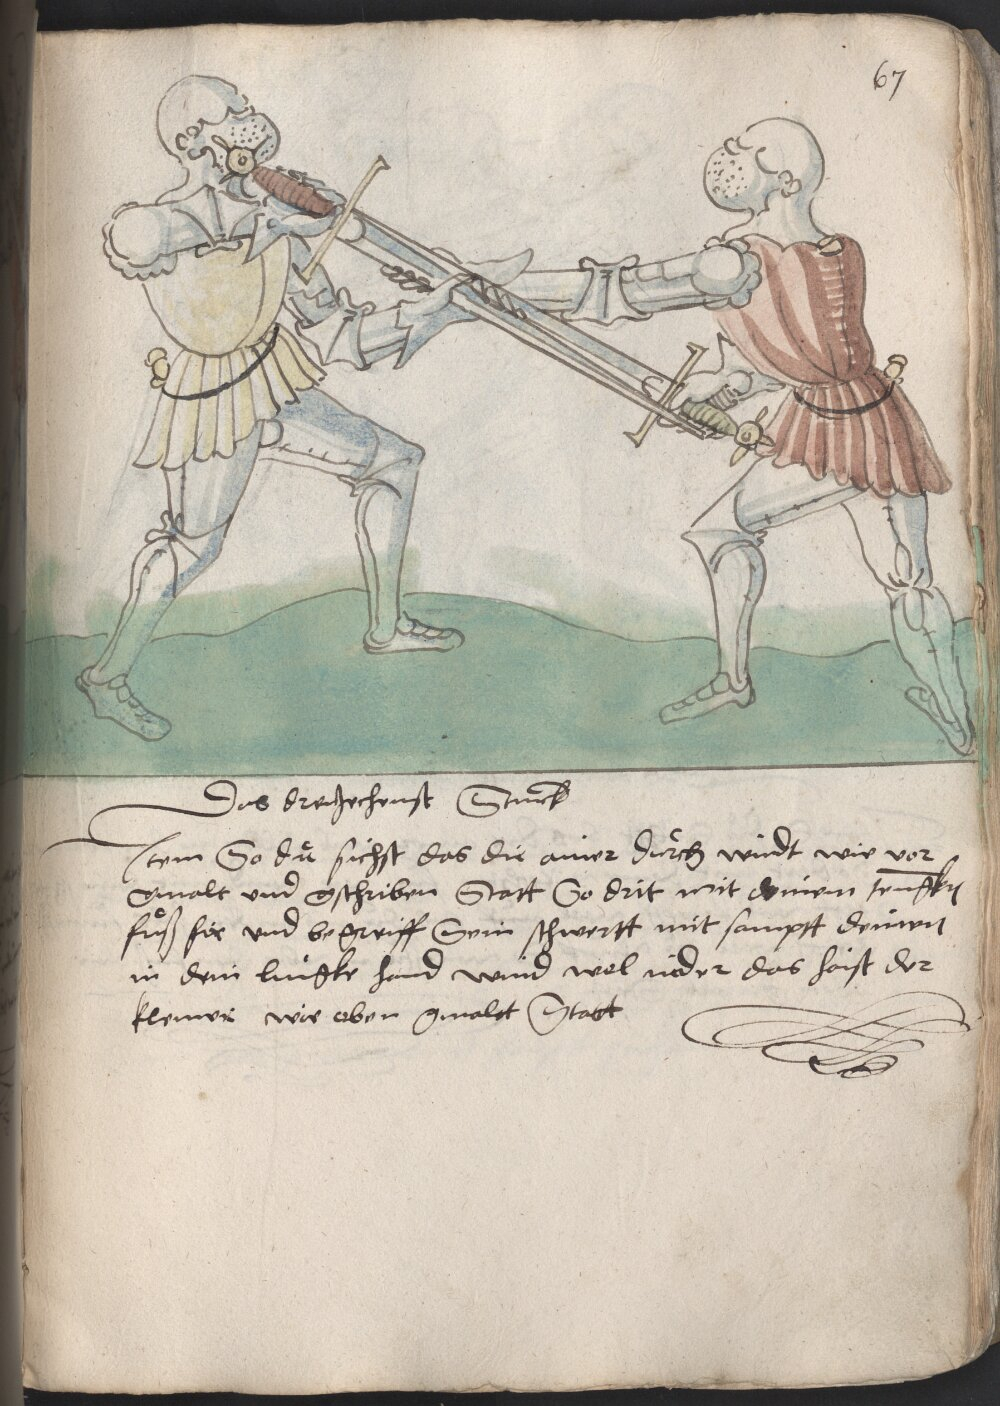 67
Das dreizechenst Stuck
Item So dů sichst das dir ainer důrch windt wie vor
gmalt vnd gschriben Statt So drit mit deinem
fůß fir vnd begreiff Sein schwertt mit sampt deinen
in dein lingke hand wind wol nider das haist der
klemer wie oben gmalet Statt